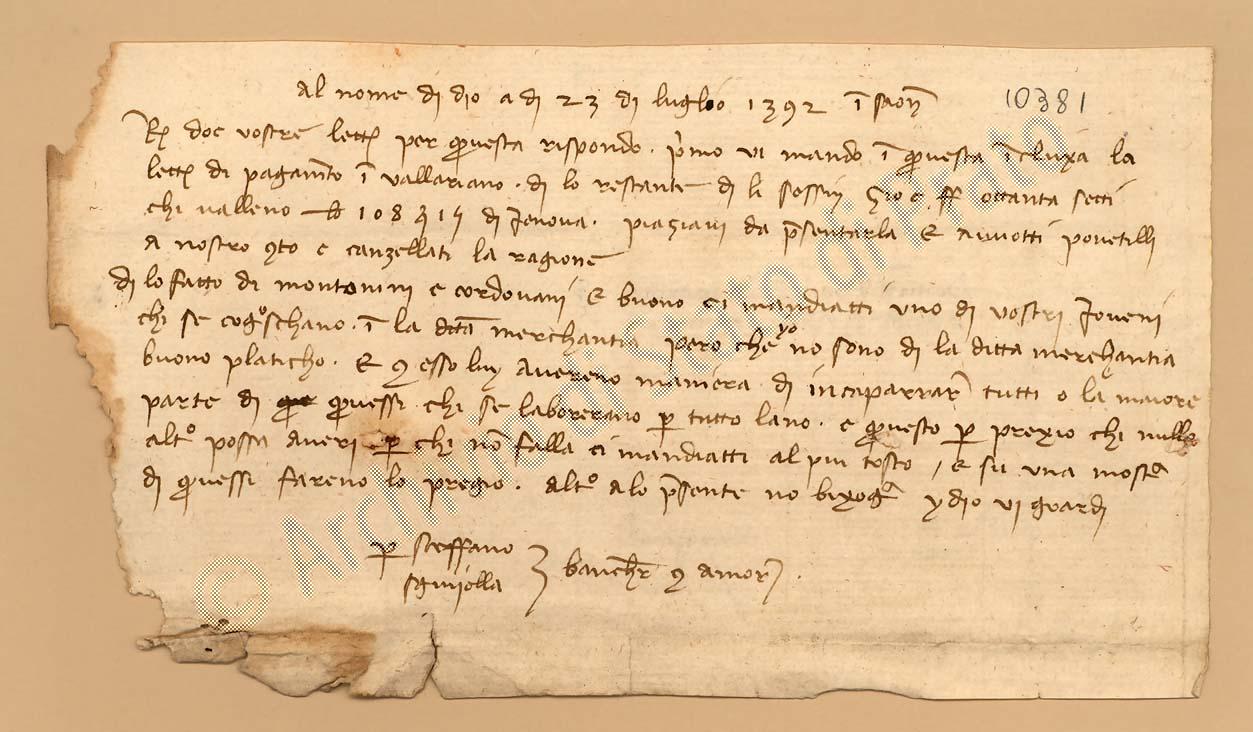 Al nome di dio a di 23 di luglio 1392 ī saoñ
10381
R̃ doe vostre lettr̃ per q̃uesta rispondo. p̃mo vi mando ī q̃uesta īcluxa la
lettr̃ di pagam̃to ī vallariano. di lo restante di li sessin zioe ff ottanta setti
chi valleno lb 108 ß 15 di Jenova. piaziavi da p̃sentarla E avuotti ponetilli
A nostro 9to e canzellati la ragione
di lo fatto di montonini e cordovani E buono ci mandiatti uno di vostri Joveni
chi se cogoschano. ī la ditta merchantia pero che yo no sono di la ditta merchantia
buono platicho. E 9 esso luy Avereno maniera di incaparrar̃ tutti o la maiore
parte di q̃uessi chi se laborerano p tutto lano. e q̃uesto p prexio chi nullo
alt͂o possa Averi p chi nõ falla ci mandiatti al piu tosto / E su una mostr̃a
di q̃uessi fareno lo pregio. alt͂o a lo p̃sente no bixogn̄a ydio vi guardi
p Steffano
Sguijolla
banch̃r 9 amor̃.
© Archivio di Stato di Prato